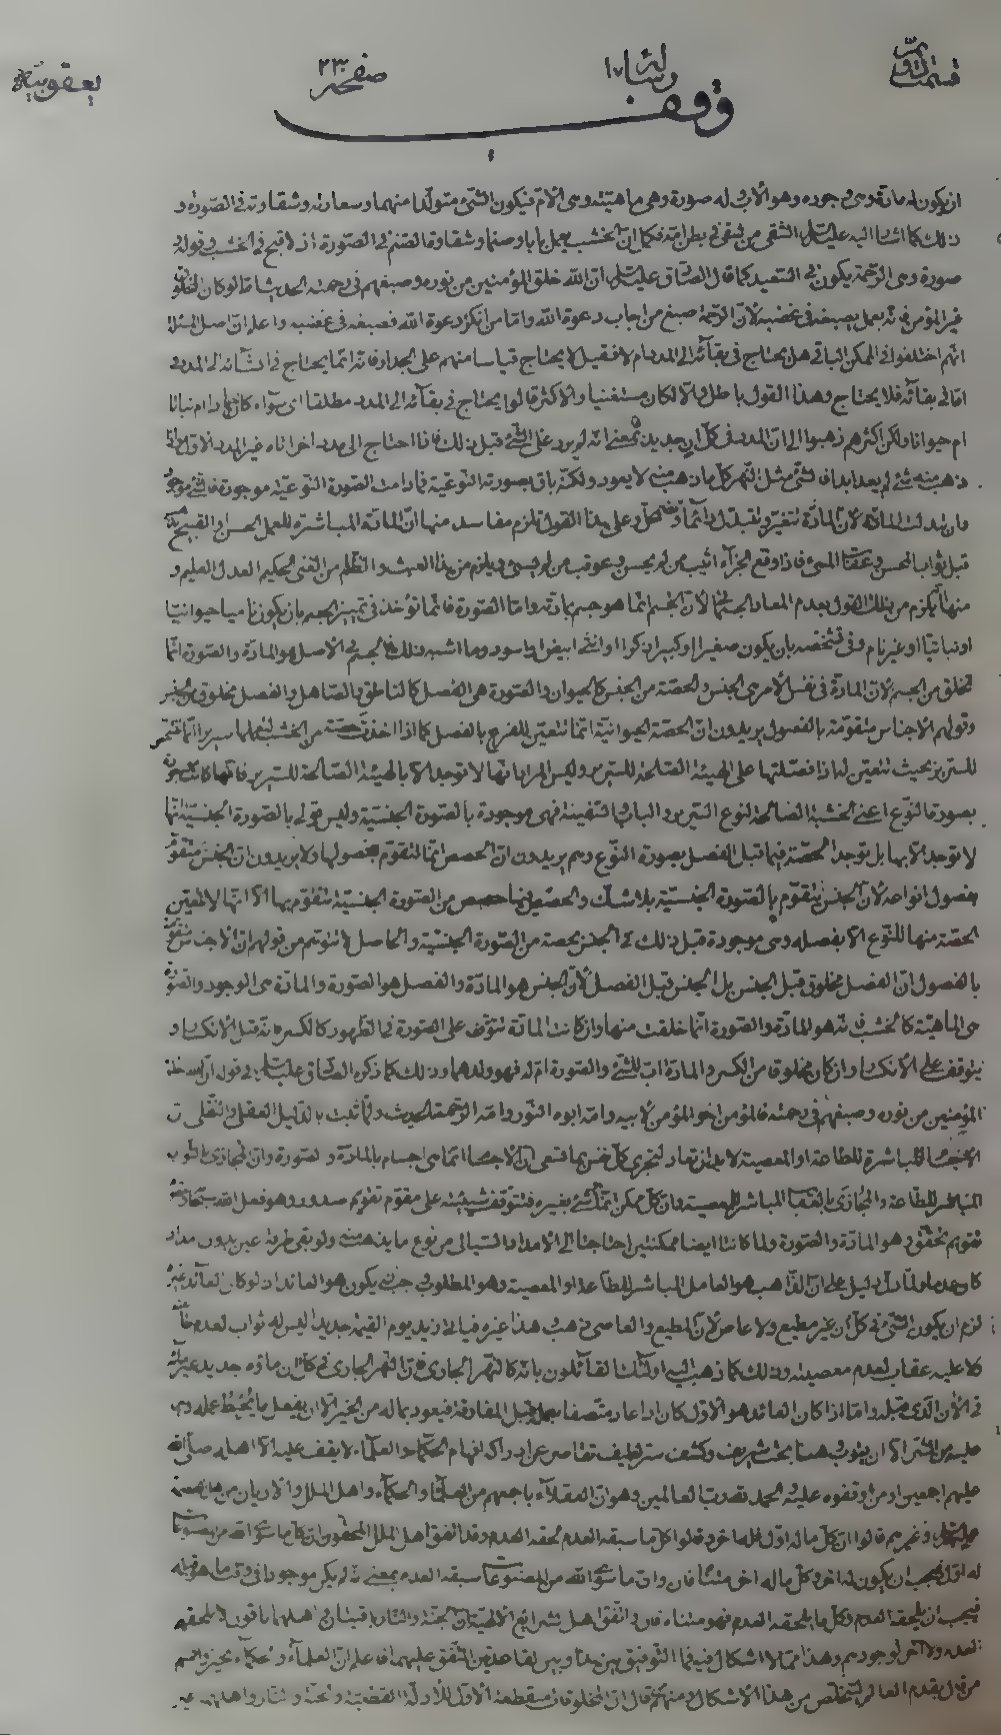 قسمت دویم
رسالة ١٧
صفحه ٢٣
یعقوبیة
وقف
ان یکون له مادة وهی وجوده وهو الأب وله صورة وهی ماهیته وهی الأم فیکون الشیء متولدا منهما وسعادته وشقاوته فی الصورة و
ذلک کما اشار الیه علیه السلم الشقی من شقی فی بطن امه فکما ان الخشب یعمل بابا وصنما وشقاوة الصنم فی الصورة اذ لا قبح فی الخشب وقوله
صورة وهی الرحمة یکون فی السعید کما قال الصادق علیه السلم ان الله خلق المؤمنین من نوره وصبغهم فی رحمته الحدیث
غیر المؤمن فانه بعمل یصبغه فی غضبه لأن الرحمة صبغ من اجاب دعوة الله واما من انکر دعوة الله فصبغه فی غضبه واعلم ان اصل المسئلة
انهم اختلفوا فی الممکن الباقی هل یحتاج فی بقائه الی المدد ام لا فقیل لا یحتاج قیاسا منهم علی الجدار فانه انما یحتاج فی انشائه الی المدد
اما فی بقائه فلا یحتاج وهذا القول باطل والا لکان مستغنیا والأکثر قالوا یحتاج فی بقائه الی المدد مطلقا ای سواء کان جمادا ام نباتا
ام حیوانا ولکن اکثرهم ذهبوا الی ان المدد فی کل آن جدید بمعنی انه لم یرد علی الشیء قبل ذلک فاذا احتاج الی مدد اخر اتاه غیر المدد الأول
ذهب منه شیء لم یعد ابدا فالشیء مثل النهر کل ما ذهب منه لا یعود ولکنه باق بصورته النوعیة فما دامت الصورة النوعیة موجودة فالشیء موجود
وان تبدلت المادة لأن المادة تتغیر وتتبدل دائما وتضمحل وعلی هذا القول تلزم مفاسد منها ان المادة المباشرة للعمل الحسن او القبیح
قبل ثواب المحسن وعقاب المسیء فاذا وقع الجزاء اثیب من لم یحسن وعوقب من لم یسیء ویلزم من هذا العبث والظلم من الغنی الحکیم العدل العلیم و
منها انه یلزم من ذلک القول بعدم المعاد الجسمانی لأن الجسم انما هو جسم بمادته واما الصورة فانما تؤخذ فی تمییز الجسم بان یکون نامیا حیوانیا
او نباتیا او غیر نام وفی تشخصه بان یکون صغیرا او کبیرا ذکرا او انثی ابیض او اسود وما اشبه ذلک فالجسم فی الأصل هو المادة والصورة انما
تخلق من الجسم لأن المادة فی نفس الأمر هی الجنس والحصة من الجنس کالحیوان والصورة هی الفصل کالناطق والصاهل والفصل مخلوق من الجنس
وقولهم الاجناس متقومة بالفصول یریدون ان الحصة الحیوانیة انما تتعین للفرس بالفصل کما اذا اخذت حصة من الخشب لتعملها سریرا انما
للسریر بحیث تتعین له اذا فصلتها علی الهیئة الصالحة للسریر ولیس المراد انها لا توجد الا بالهیئة الصالحة للسریر فانها کانت موجودة
بصورة النوع اعنی الخشبة الصالحة لنوع السریر والباب والسفینة فهی موجودة بالصورة الجنسیة ولیس قولی بالصورة الجنسیة انها
لا توجد الا بها بل توجد الحصة فیما قبل الفصل بصورة النوع وهم یریدون ان الحصص انما تتقوم بفصولها ولا یریدون ان الجنس متقوم
بفصول انواعه لأن الجنس یتقوم بالصورة الجنسیة بلا شک والحصص ایضا حصص من الصورة الجنسیة تتقوم بها الا انها لا تتعین
الحصة منها للنوع الا بفصله وهی موجودة قبل ذلک فی الجنس بحصة من الصورة الجنسیة والحاصل لا تتوهم من قولهم ان الاجناس متقومة
بالفصول ان الفصل مخلوق قبل الجنس بل الجنس قبل الفصل لأن الجنس هو المادة والفصل هو الصورة والمادة هی الوجود والصورة
هی الماهیة کالخشب فانه هو المادة والصورة انما خلقت منها وان کانت المادة تتوقف علی الصورة فی الظهور کالکسر فانه قبل الانکسار و
یتوقف علی الأنکسار وان کان مخلوقا من الکسر والمادة اب للشیء والصورة ام له فهو ولدهما وذلک کما ذکره الصادق علیه السلم فی قوله ان الله خلق
المؤمنین من نوره وصبغهم فی رحمته فالمؤمن اخو المؤمن لأبیه وامه ابوه النور وامه الرحمة الحدیث ولما ثبت بالدلیل العقلی والنقلی ان
الاجسام المباشرة للطاعة او المعصیة لا بد ان تعاد لتجزی کل نفس بما تسعی وان الاجسام انما هی اجسام بالمادة والصورة وان المجازی بالثواب
المباشر للطاعة والمجازی بالعقاب المباشر للمعصیة وان کل ممکن شیء بغیره فتتوقف شیئیته علی مقوم تقویم صدور وهو فعل الله سبحانه
تقویم تحقق وهو المادة والصورة ولما کانتا ایضا ممکنتین احتاجتا الی الامداد السیالی من نوع ما یذهب منه ولو بقی طرفة عین بدون مداد
کان عدما ولما دل الدلیل علی ان الذاهب هو العامل المباشر للطاعة او المعصیة وهو المطلوب جزاؤه یکون هو العائد اذ لو کان العائد غیره
لزم ان یکون الشیء فی کل آن غیر مطیع ولا عاص لأن المطیع والعاصی ذهب وهذا غیره فیأتی زید یوم القیمة جدیدا لیس له ثواب لعدم طاعته
ولا علیه عقاب لعدم معصیته وذلک کما ذهب الیه اولئک القائلون بانه کالنهر الجاری فان النهر الجاری فی کل آن ماؤه جدید غیر مائه
فی الآن الذی قبله واما اذا کان العائد هو الأول کان اذا عاد متصفا بعمله قبل المفارقة فیعود بما له من الخیر الا ان یفعل ما یحبط عمله وما
علیه من الشر الا ان یتوب وهنا بحث شریف وکشف سر لطیف تتقاصر عن ادراکه افهام الحکماء والعلماء لا یقف علیه الا اهله صلی الله
علیهم اجمعین او من اوقفوه علیه والحمد لله رب العالمین وهو ان العقلاء باجمعهم من العلماء والحکماء واهل الملل والأدیان
وغیرهم قالوا ان کل ما له اول فله آخر وقالوا کل ما سبقه العدم لحقه العدم وقد اتفق اهل الملل المحققون ان کل ما سوی الله
له اول فیجب ان یکون له اخر وکل ما له اخر متناه فان وان ما سوی الله من المصنوعات سبقه العدم بمعنی انه لم یکن موجودا فی وقت ما هو قبله
فیجب ان یلحقه العدم وکل ما یلحقه العدم فهو متناه فان واتفق اهل شرایع الالهیة ان الجنة والنار باقیتان واهلهما باقون لا یلحقهم
العدم ولا آخر لوجودهم وهذا مما لا اشکال فیه فما التوفیق بین هذا وبین القاعدتین المتفق علیهما فاعلم ان العلماء والحکماء تحیروا فمنهم
من قال بقدم العالم لیتخلص من هذا الأشکال ومنهم من قال ان المخلوقات منقطعة الأول للأدلة القطعیة والجنة والنار واهلهما غیر